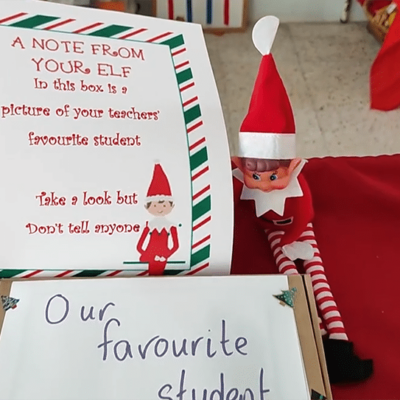 A NOTE FROM
YOUR ELF
In this box is a
picture of your teachers'
favourite student
Take a look but
Don't tell anyone!
Our
favourite
student